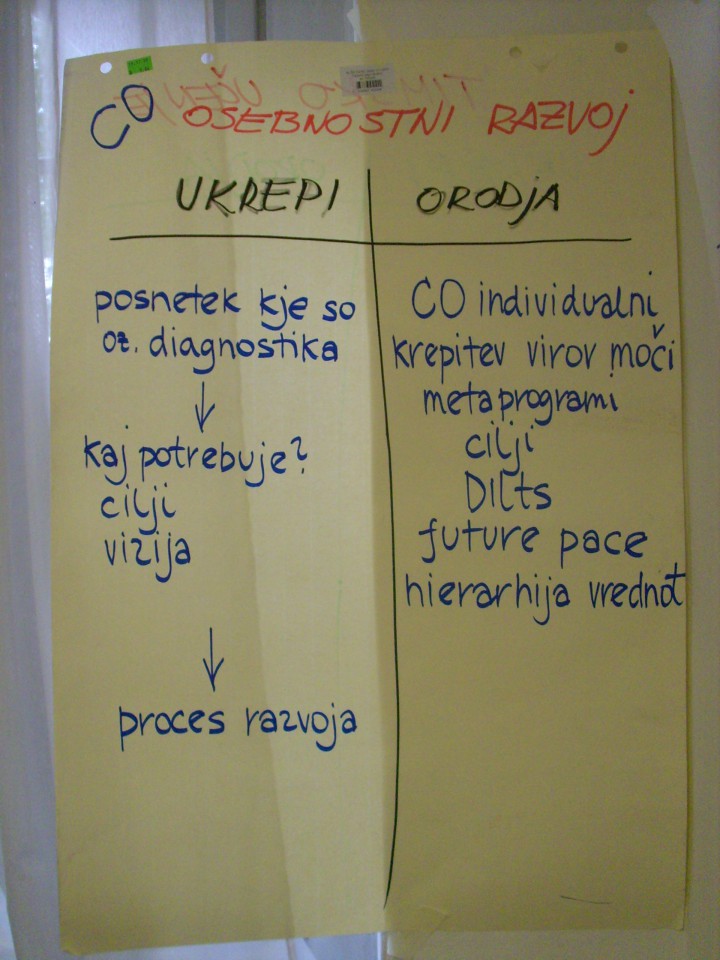 CO OSEBNOSTNI RAZVOJ
UKREPI
posnetek kje so
oz. diagnostika
↓
kaj potrebuje?
cilji
vizija
↓
proces razvoja
ORODJA
CO individualni
krepitev virov moči
metaprogrami
cilji
DILTS
future pace
hierarhija vrednot